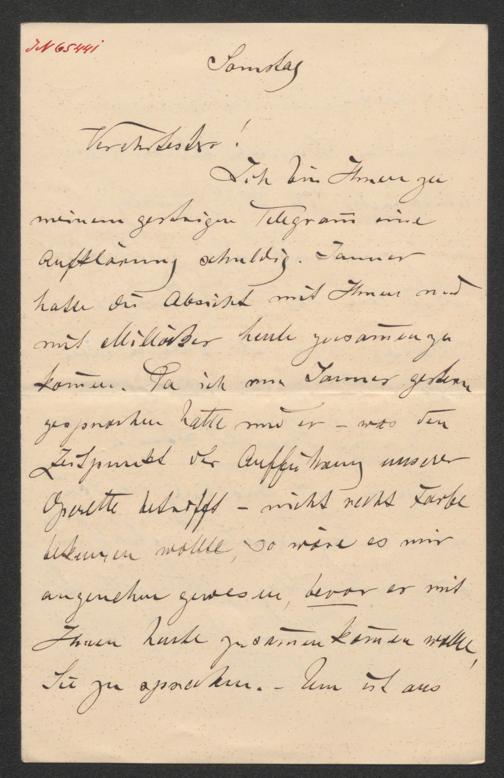 JN 65441
Samstag
Verehrtester!
Ich bin Ihnen zu
meinem gestrigen Telegram̄ eine
Aufklärung schuldig. Jauner
hatte die Absicht mit Ihnen und
mit Millöcker heute zusammenzu
kom̄en. Da ich nun Jauner gestern
gesprochen hatte und er – was den
Zeitpunkt der Aufführung unserer
Operette betrifft – nicht recht Farbe
bekennen wollte, so wäre es mir
angenehm gewesen, bevor er mit
Ihnen heute zusam̄enkom̄en wollte,
Sie zu sprechen. – Nun ist aus